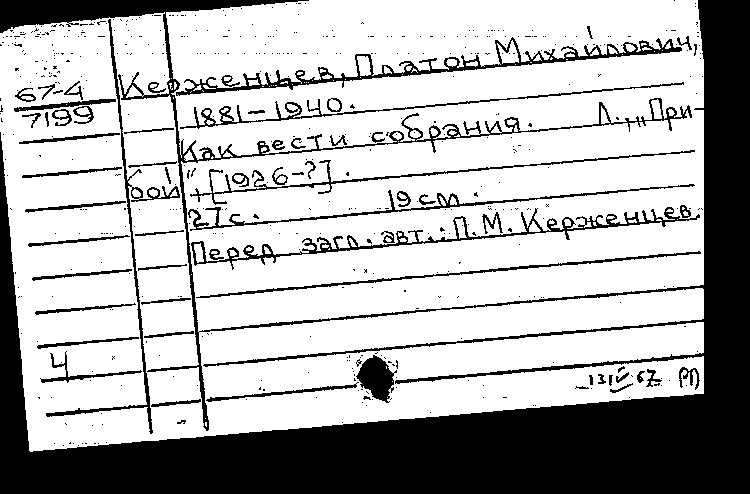 67-4 Керженцев, Платон Михайлович,
7199 1881-1940.
Как вести собрания. Л., „При-
бой“, [1926-?].
27 с. 19 см.
Перед загл. авт.: П.М. Керженцев.
4